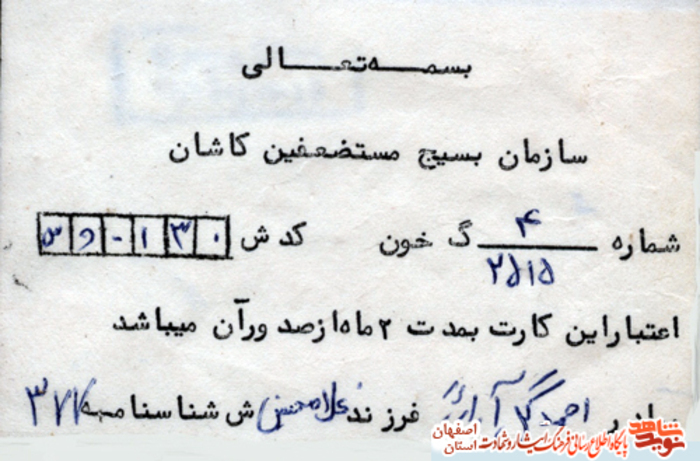 بسمه تعالی
سازمان بسیج مستضعفین کاشان
شماره ۴ گ خون کد ش
۲۵۱۵
اعتبار این کارت بمدت ۲ ماه از صدور آن میباشد
برادر احمد فرزند غلامحسین ش شناسنامه ۳۷۷
نوید شاهد
پایگاه اطلاع رسانی فرهنگ ایثار و شهادت
استان اصفهان